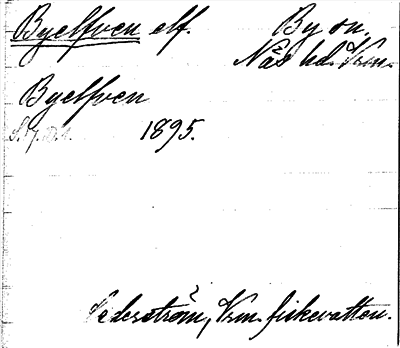 Byelfven elf. By sn.
Näs hd. Vrm.
Byelfven
1895.
Cederström, Vrm. fiskevatten.